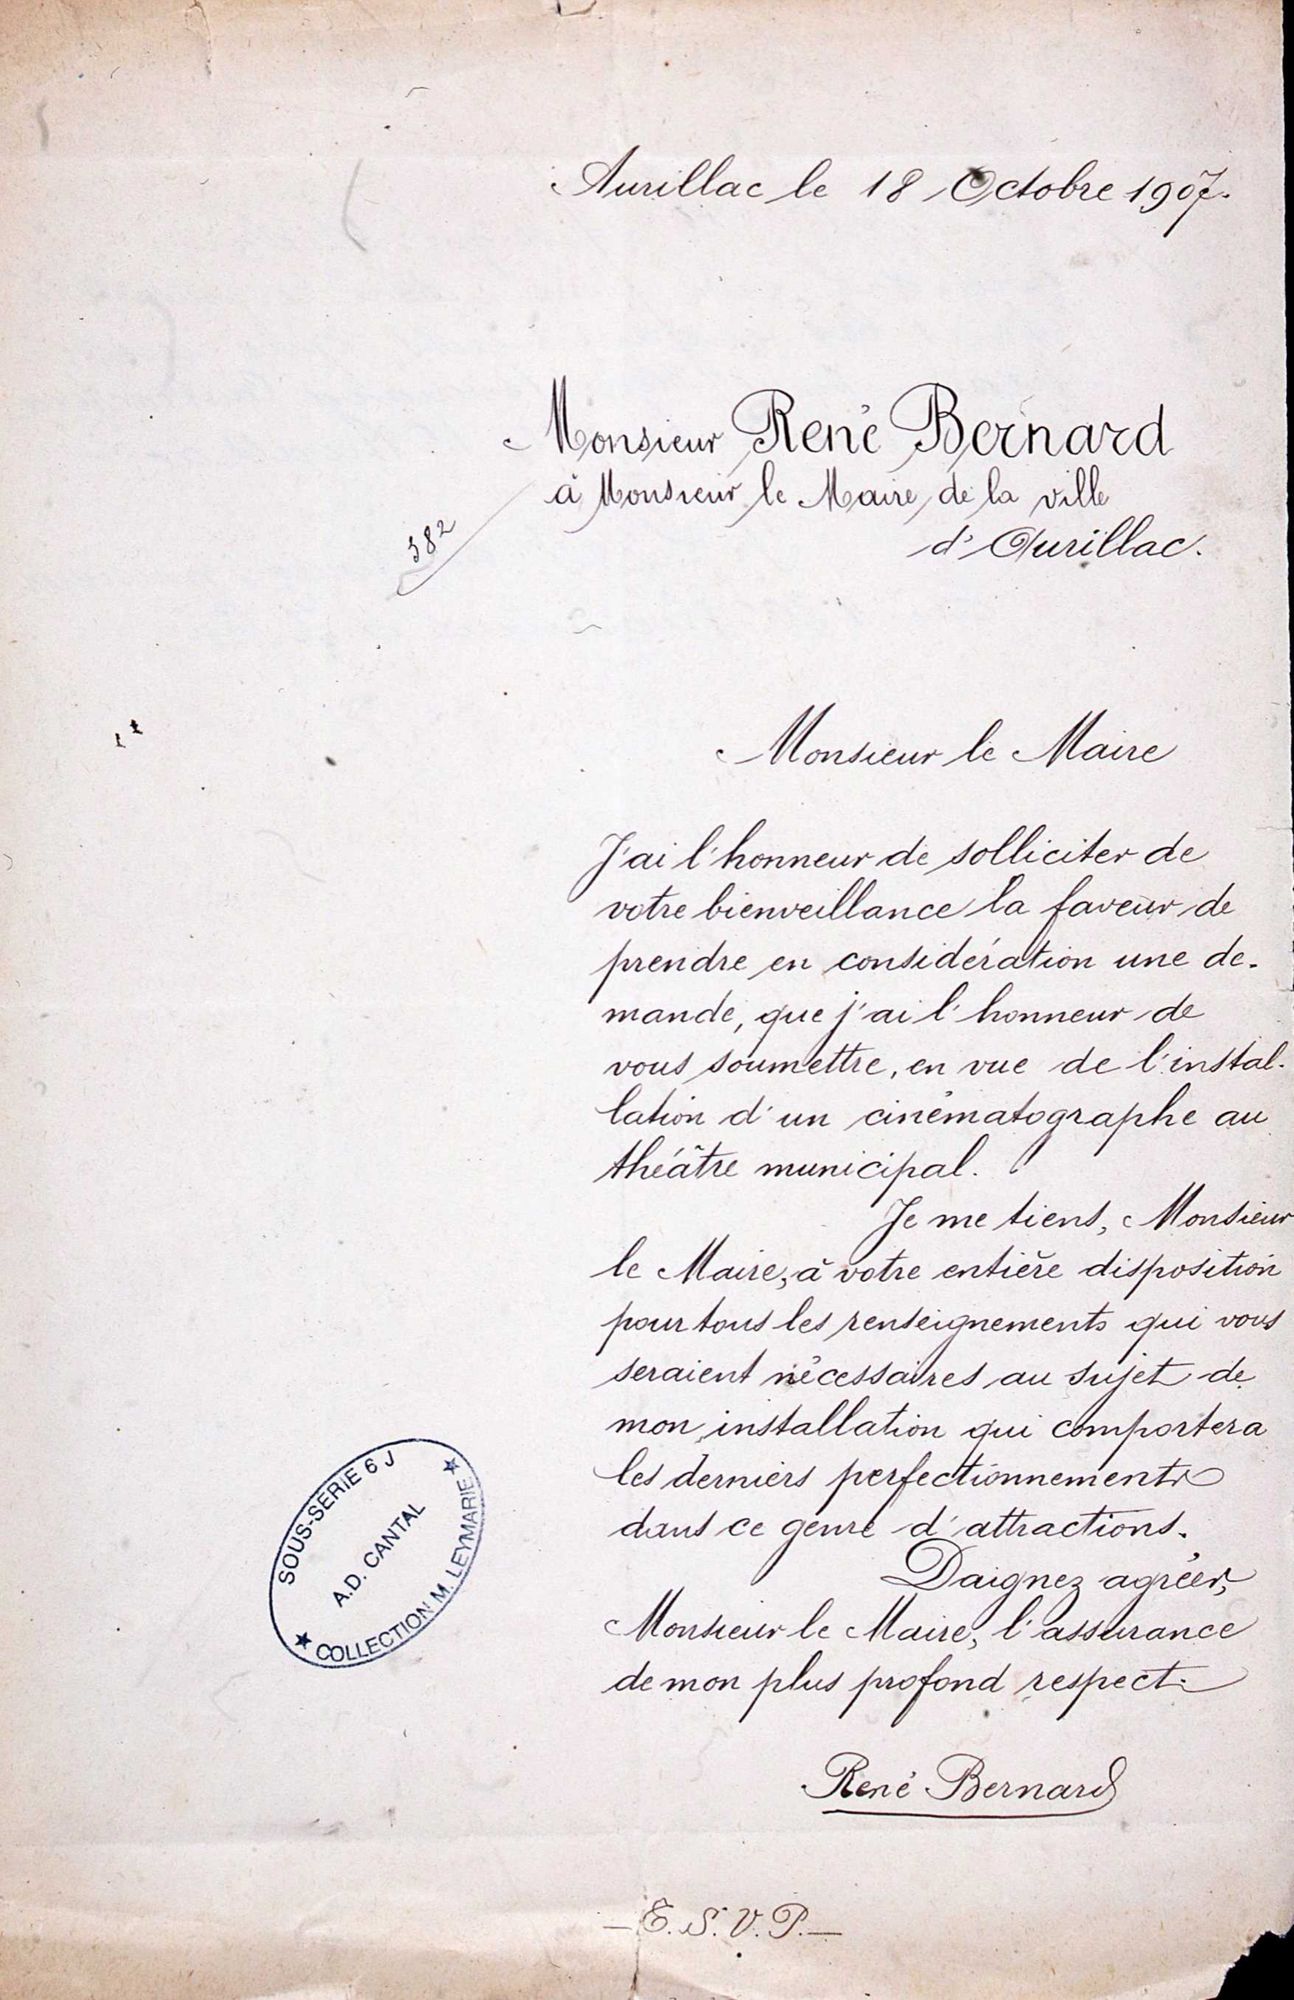 Aurillac le 18 Octobre 1907.
Monsieur René Bernard
à Monsieur le Maire de la ville
d'Aurillac.
382
Monsieur le Maire
J'ai l'honneur de solliciter de
votre bienveillance la faveur de
prendre en considération une de-
mande, que j'ai l'honneur de
vous soumettre, en vue de l'instal-
lation d'un cinématographe au
théâtre municipal.
Je me tiens, Monsieur
le Maire, à votre entière disposition
pour tous les renseignements qui vous
seraient nécessaires au sujet de
mon installation qui comportera
les derniers perfectionnements
dans ce genre d'attractions.
Daignez agréer,
Monsieur le Maire, l'assurance
de mon plus profond respect.
René Bernard
SOUS-SERIE 6 J
A.D. CANTAL
★ COLLECTION M. LEYMARIE ★
— T. S. V. P. —